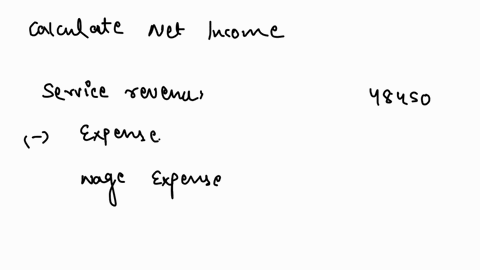 Calculate Net Income
Service revenue 48450
(-) Expense
Wage Expense